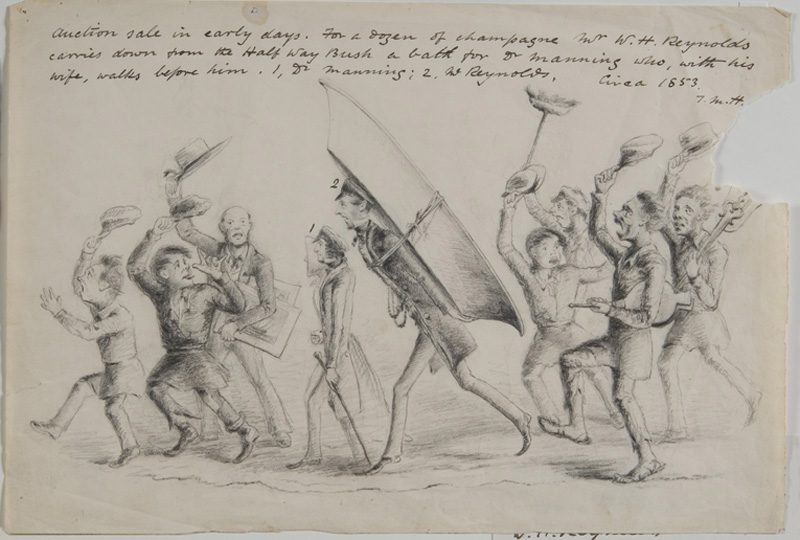 Auction sale in early days. For a dozen of champagne Mr W. H. Reynolds
carries down from the Half Way Bush a bath for Dr Manning who, with his
wife, walks before him. 1, Dr Manning; 2. Mr Reynolds.
Circa 1853.
T. M. H.
2
1
W. H. Reynolds